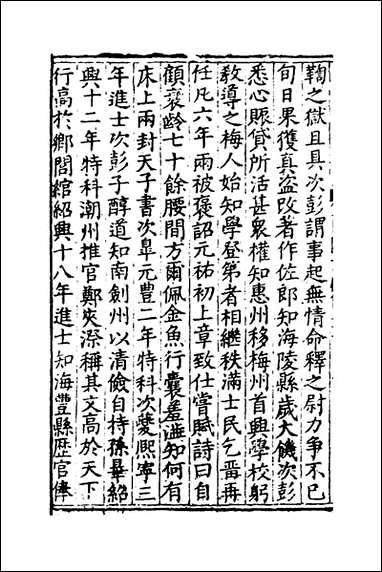 鞫之獄且具次彭謂事起無情命釋之尉力爭不已
旬日果獲真盜改著作佐郎知海陵縣歲大饑次彭
悉心賑貸所活甚衆權知惠州移梅州首興學校躬
敎導之梅人始知學登第者相繼秩滿士民乞畱再
任凡六年兩被褒詔元祐初上章致仕嘗賦詩曰自
顧衰齡七十餘腰間方爾佩金魚行囊羞澁知何有
床上兩封天子書次臯元豐二年特科次裴熙寧三
年進士次彭子醇道知南劍州以清儉自持孫畢紹
興十二年特科潮州推官鄭夾漈稱其文高於天下
行高於鄉閭綰紹興十八年進士知海豐縣歷官俸